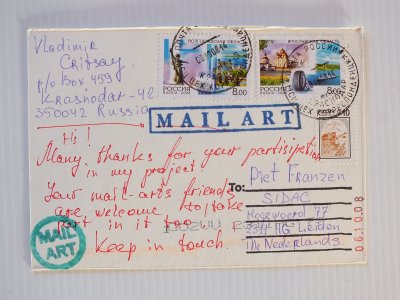 Vladimir
Critsay
p/o Box 459
Krasnodar-42
350042 Russia
ПОЧТА РОССИИ
РОССИЯ
8.00
РОССИЯ
8.00
MAIL ART
Hi!
Many thanks for your partisipation
in my project!
Your mail-arts friends
are welcome to take
part in it too
Keep in touch.
To:
Piet Franzen
SIDAC
77
Leiden
Nederlands
MAIL
ART
061008